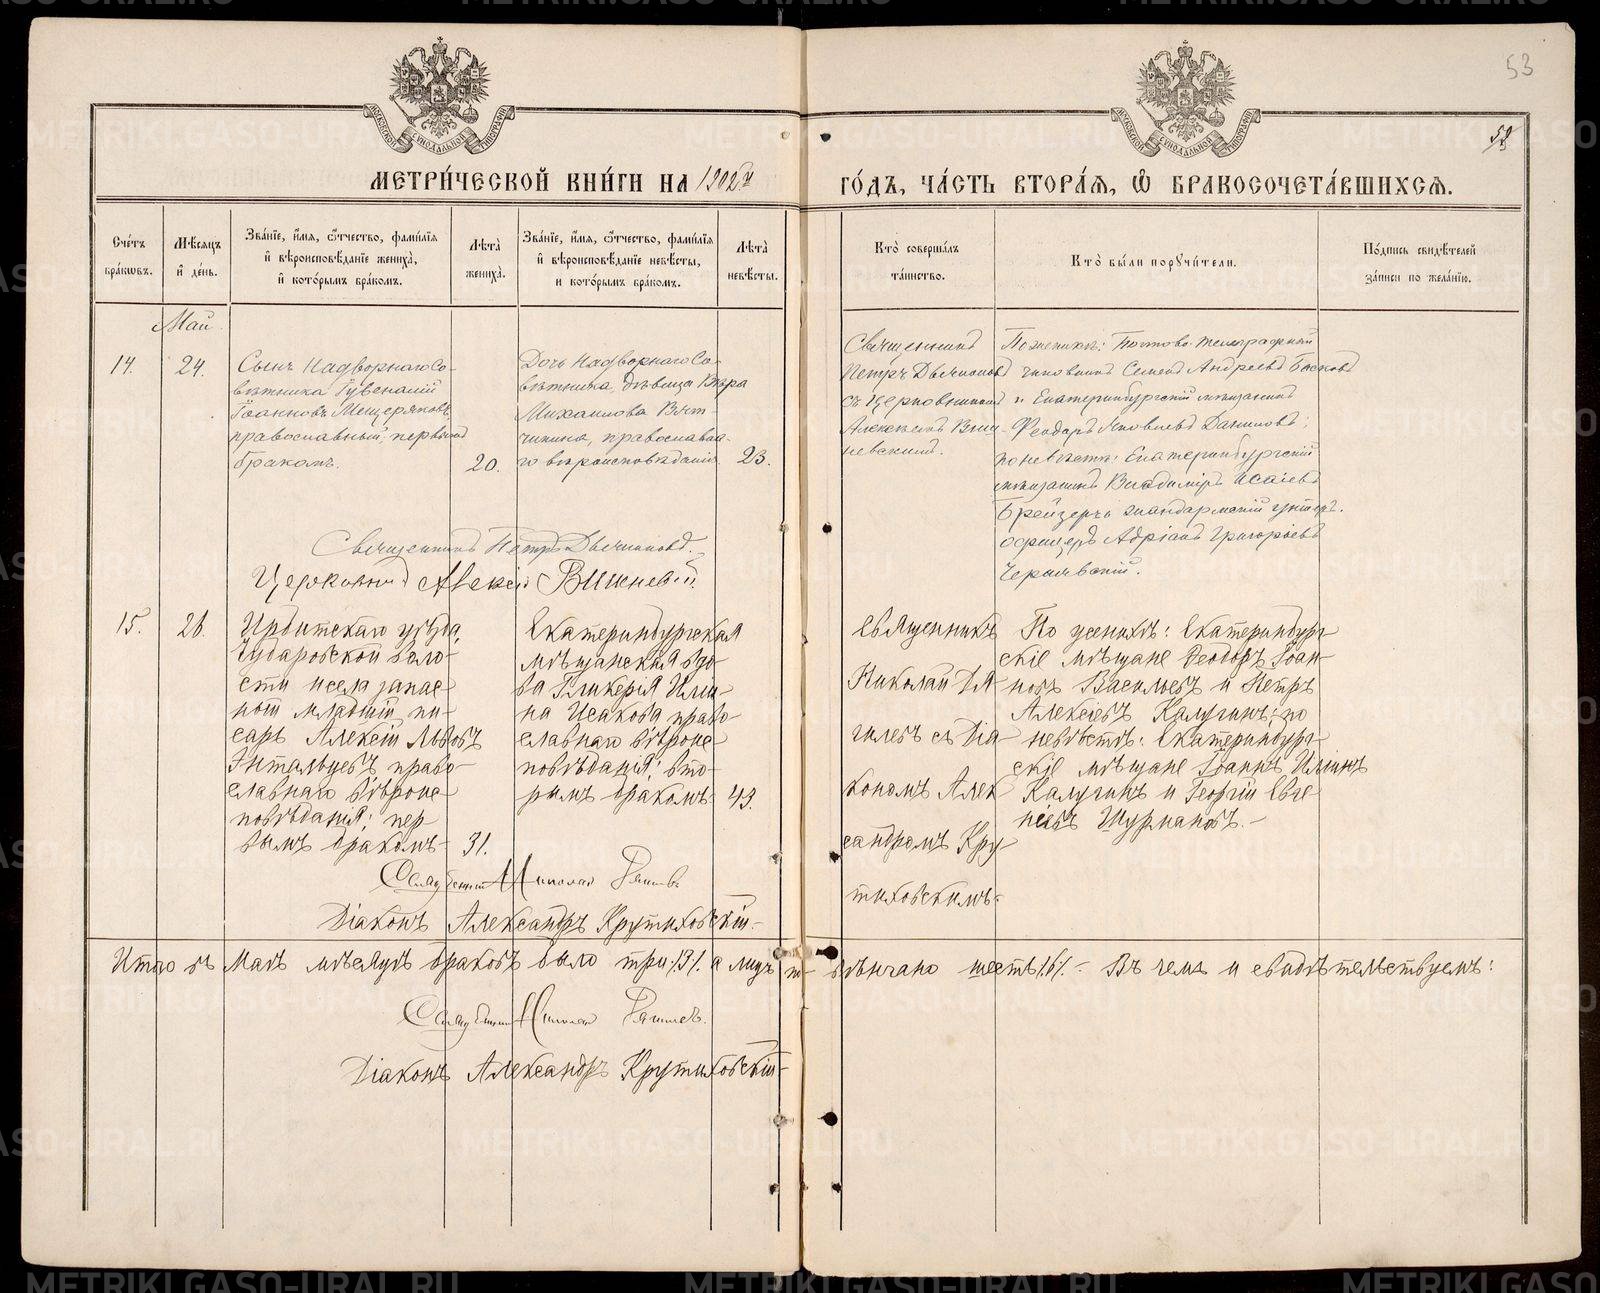 53
МОСКОВСКОЙ СѴНОДАЛЬНОЙ ТИПОГРАФІИ
МОСКОВСКОЙ СѴНОДАЛЬНОЙ ТИПОГРАФІИ
МЕТРИ́ЧЕСКОЙ КНИ́ГИ НА 1902й
ГО́ДЪ, ЧА́СТЬ ВТОРА́Я, Ѡ БРАКОСОЧЕТА́ВШИХСЯ.
Сче́тъ
бра́ковъ.
Мѣсяцъ
и҆ де́нь.
Зва́нїе, и҆мя, ѻ҆́тчество, фами́лїя
и҆ вѣроисповѣданїе жениха̀,
и҆ кото́рымъ бра́комъ.
Лѣта̀
жениха̀.
Зва́нїе, и҆мя, ѻ҆́тчество, фами́лїя
и҆ вѣроисповѣданїе невѣсты,
и кото́рымъ бра́комъ.
Лѣта̀
невѣсты.
Кто̀ соверша́лъ
та́инство.
Кто̀ бы́ли порꙋчи́тели.
По́дпись свидѣтелей
за́писи по жела́нїю.
Май
14.
24.
Сынъ Надворнаго Со-
вѣтника Ювеналій
Іоанновъ Мещеряковъ
православный, первымъ
бракомъ.
20.
Дочь Надворнаго Со-
вѣтника, дѣвица Вѣра
Михаилова Вят-
чинина, православна-
го вѣроисповѣданія
23.
Священникъ
Петръ
съ церковникомъ
Алексѣемъ Виш-
невскимъ.
По женихѣ: Почтово-телеграфный
чиновникъ Семенъ Андреевъ Басковъ
и Екатеринбургскій мѣщанинъ
Феодоръ Яковлевъ Даниловъ;
по невѣстѣ: Екатеринбургскій
мѣщанинъ Владиміръ Исаіевъ
Брейзеръ жандармскій унтеръ-
офицеръ Адріанъ Григорьевъ
Чернявскій.
Священникъ Петръ
Церковникъ Алексѣй Вишневскій.
15.
26.
Ирбитскаго уѣзда,
Чубаровской воло-
сти и села запас-
ный младшій пи-
сарь Алексій Львовъ
Энтальцевъ право-
славнаго вѣроис-
повѣданія; пер-
вымъ бракомъ-
31.
Екатеринбургская
мѣщанская вдо-
ва Гликерія Иліи-
на Исакова право-
славнаго вѣроис-
повѣданія; вто-
рымъ бракомъ-
43.
Священникъ
Николай Дя-
гилевъ съ Діа-
кономъ Алек-
сандромъ Кру-
тиховскимъ.
По женихѣ: Екатеринбург-
скіе мѣщане Феодоръ Іоан-
новъ Васильевъ и Петръ
Алексіевъ Калугинъ; по
невѣстѣ: Екатеринбург-
скіе мѣщане Іоаннъ Иліинъ
Калугинъ и Георгій Евге-
ніевъ Шурмановъ.-
Священникъ Николай Дягилевъ
Діаконъ Александръ Крутиховскій.-
Итого въ Маѣ мѣсяцѣ браковъ было три /3/. а лицъ по- вѣнчано шесть /6/.- Въ чемъ и свидѣтельствуемъ:
Священникъ Николай Дягилевъ.
Діаконъ Александръ Крутиховскій-
METRIKI.GASO-URAL.RU